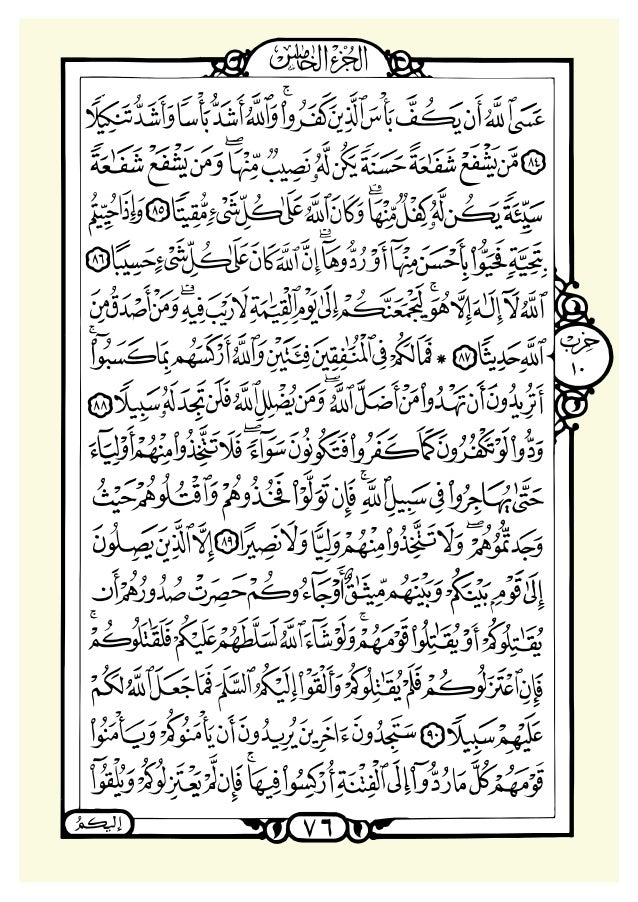 الجزء الخامس
عَسَى ٱللَّهُ أَن يَكُفَّ بَأْسَ ٱلَّذِينَ كَفَرُوا۟ ۚ وَٱللَّهُ أَشَدُّ بَأْسًا وَأَشَدُّ تَنكِيلًا
٨٤ مَّن يَشْفَعْ شَفَـٰعَةً حَسَنَةً يَكُن لَّهُۥ نَصِيبٌ مِّنْهَا ۖ وَمَن يَشْفَعْ شَفَـٰعَةً
سَيِّئَةً يَكُن لَّهُۥ كِفْلٌ مِّنْهَا ۗ وَكَانَ ٱللَّهُ عَلَىٰ كُلِّ شَىْءٍ مُّقِيتًا ٨٥ وَإِذَا حُيِّيتُم
بِتَحِيَّةٍ فَحَيُّوا۟ بِأَحْسَنَ مِنْهَآ أَوْ رُدُّوهَآ ۗ إِنَّ ٱللَّهَ كَانَ عَلَىٰ كُلِّ شَىْءٍ حَسِيبًا ٨٦
ٱللَّهُ لَآ إِلَـٰهَ إِلَّا هُوَ ۚ لَيَجْمَعَنَّكُمْ إِلَىٰ يَوْمِ ٱلْقِيَـٰمَةِ لَا رَيْبَ فِيهِ ۗ وَمَنْ أَصْدَقُ مِنَ
ٱللَّهِ حَدِيثًا ٨٧ * فَمَا لَكُمْ فِى ٱلْمُنَـٰفِقِينَ فِئَتَيْنِ وَٱللَّهُ أَرْكَسَهُم بِمَا كَسَبُوٓا۟ ۚ
أَتُرِيدُونَ أَن تَهْدُوا۟ مَنْ أَضَلَّ ٱللَّهُ ۖ وَمَن يُضْلِلِ ٱللَّهُ فَلَن تَجِدَ لَهُۥ سَبِيلًا ٨٨
وَدُّوا۟ لَوْ تَكْفُرُونَ كَمَا كَفَرُوا۟ فَتَكُونُونَ سَوَآءً ۖ فَلَا تَتَّخِذُوا۟ مِنْهُمْ أَوْلِيَآءَ
حَتَّىٰ يُهَاجِرُوا۟ فِى سَبِيلِ ٱللَّهِ ۚ فَإِن تَوَلَّوْا۟ فَخُذُوهُمْ وَٱقْتُلُوهُمْ حَيْثُ
وَجَدتُّمُوهُمْ ۖ وَلَا تَتَّخِذُوا۟ مِنْهُمْ وَلِيًّا وَلَا نَصِيرًا ٨٩ إِلَّا ٱلَّذِينَ يَصِلُونَ
إِلَىٰ قَوْمٍ بَيْنَكُمْ وَبَيْنَهُم مِّيثَـٰقٌ أَوْ جَآءُوكُمْ حَصِرَتْ صُدُورُهُمْ أَن
يُقَـٰتِلُوكُمْ أَوْ يُقَـٰتِلُوا۟ قَوْمَهُمْ ۚ وَلَوْ شَآءَ ٱللَّهُ لَسَلَّطَهُمْ عَلَيْكُمْ فَلَقَـٰتَلُوكُمْ ۚ
فَإِنِ ٱعْتَزَلُوكُمْ فَلَمْ يُقَـٰتِلُوكُمْ وَأَلْقَوْا۟ إِلَيْكُمُ ٱلسَّلَمَ فَمَا جَعَلَ ٱللَّهُ لَكُمْ
عَلَيْهِمْ سَبِيلًا ٩٠ سَتَجِدُونَ ءَاخَرِينَ يُرِيدُونَ أَن يَأْمَنُوكُمْ وَيَأْمَنُوا۟
قَوْمَهُمْ كُلَّ مَا رُدُّوٓا۟ إِلَى ٱلْفِتْنَةِ أُرْكِسُوا۟ فِيهَا ۚ فَإِن لَّمْ يَعْتَزِلُوكُمْ وَيُلْقُوٓا۟
حزب
١٠
٧٦
إليكم